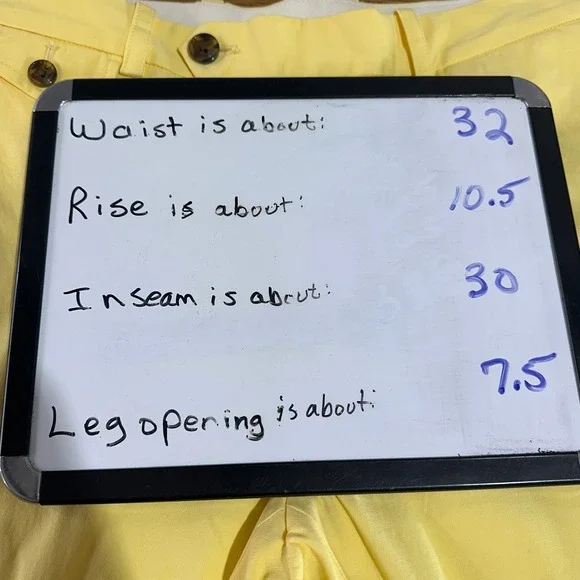 Waist is about: 32
Rise is about: 10.5
Inseam is about: 30
Leg opening is about: 7.5